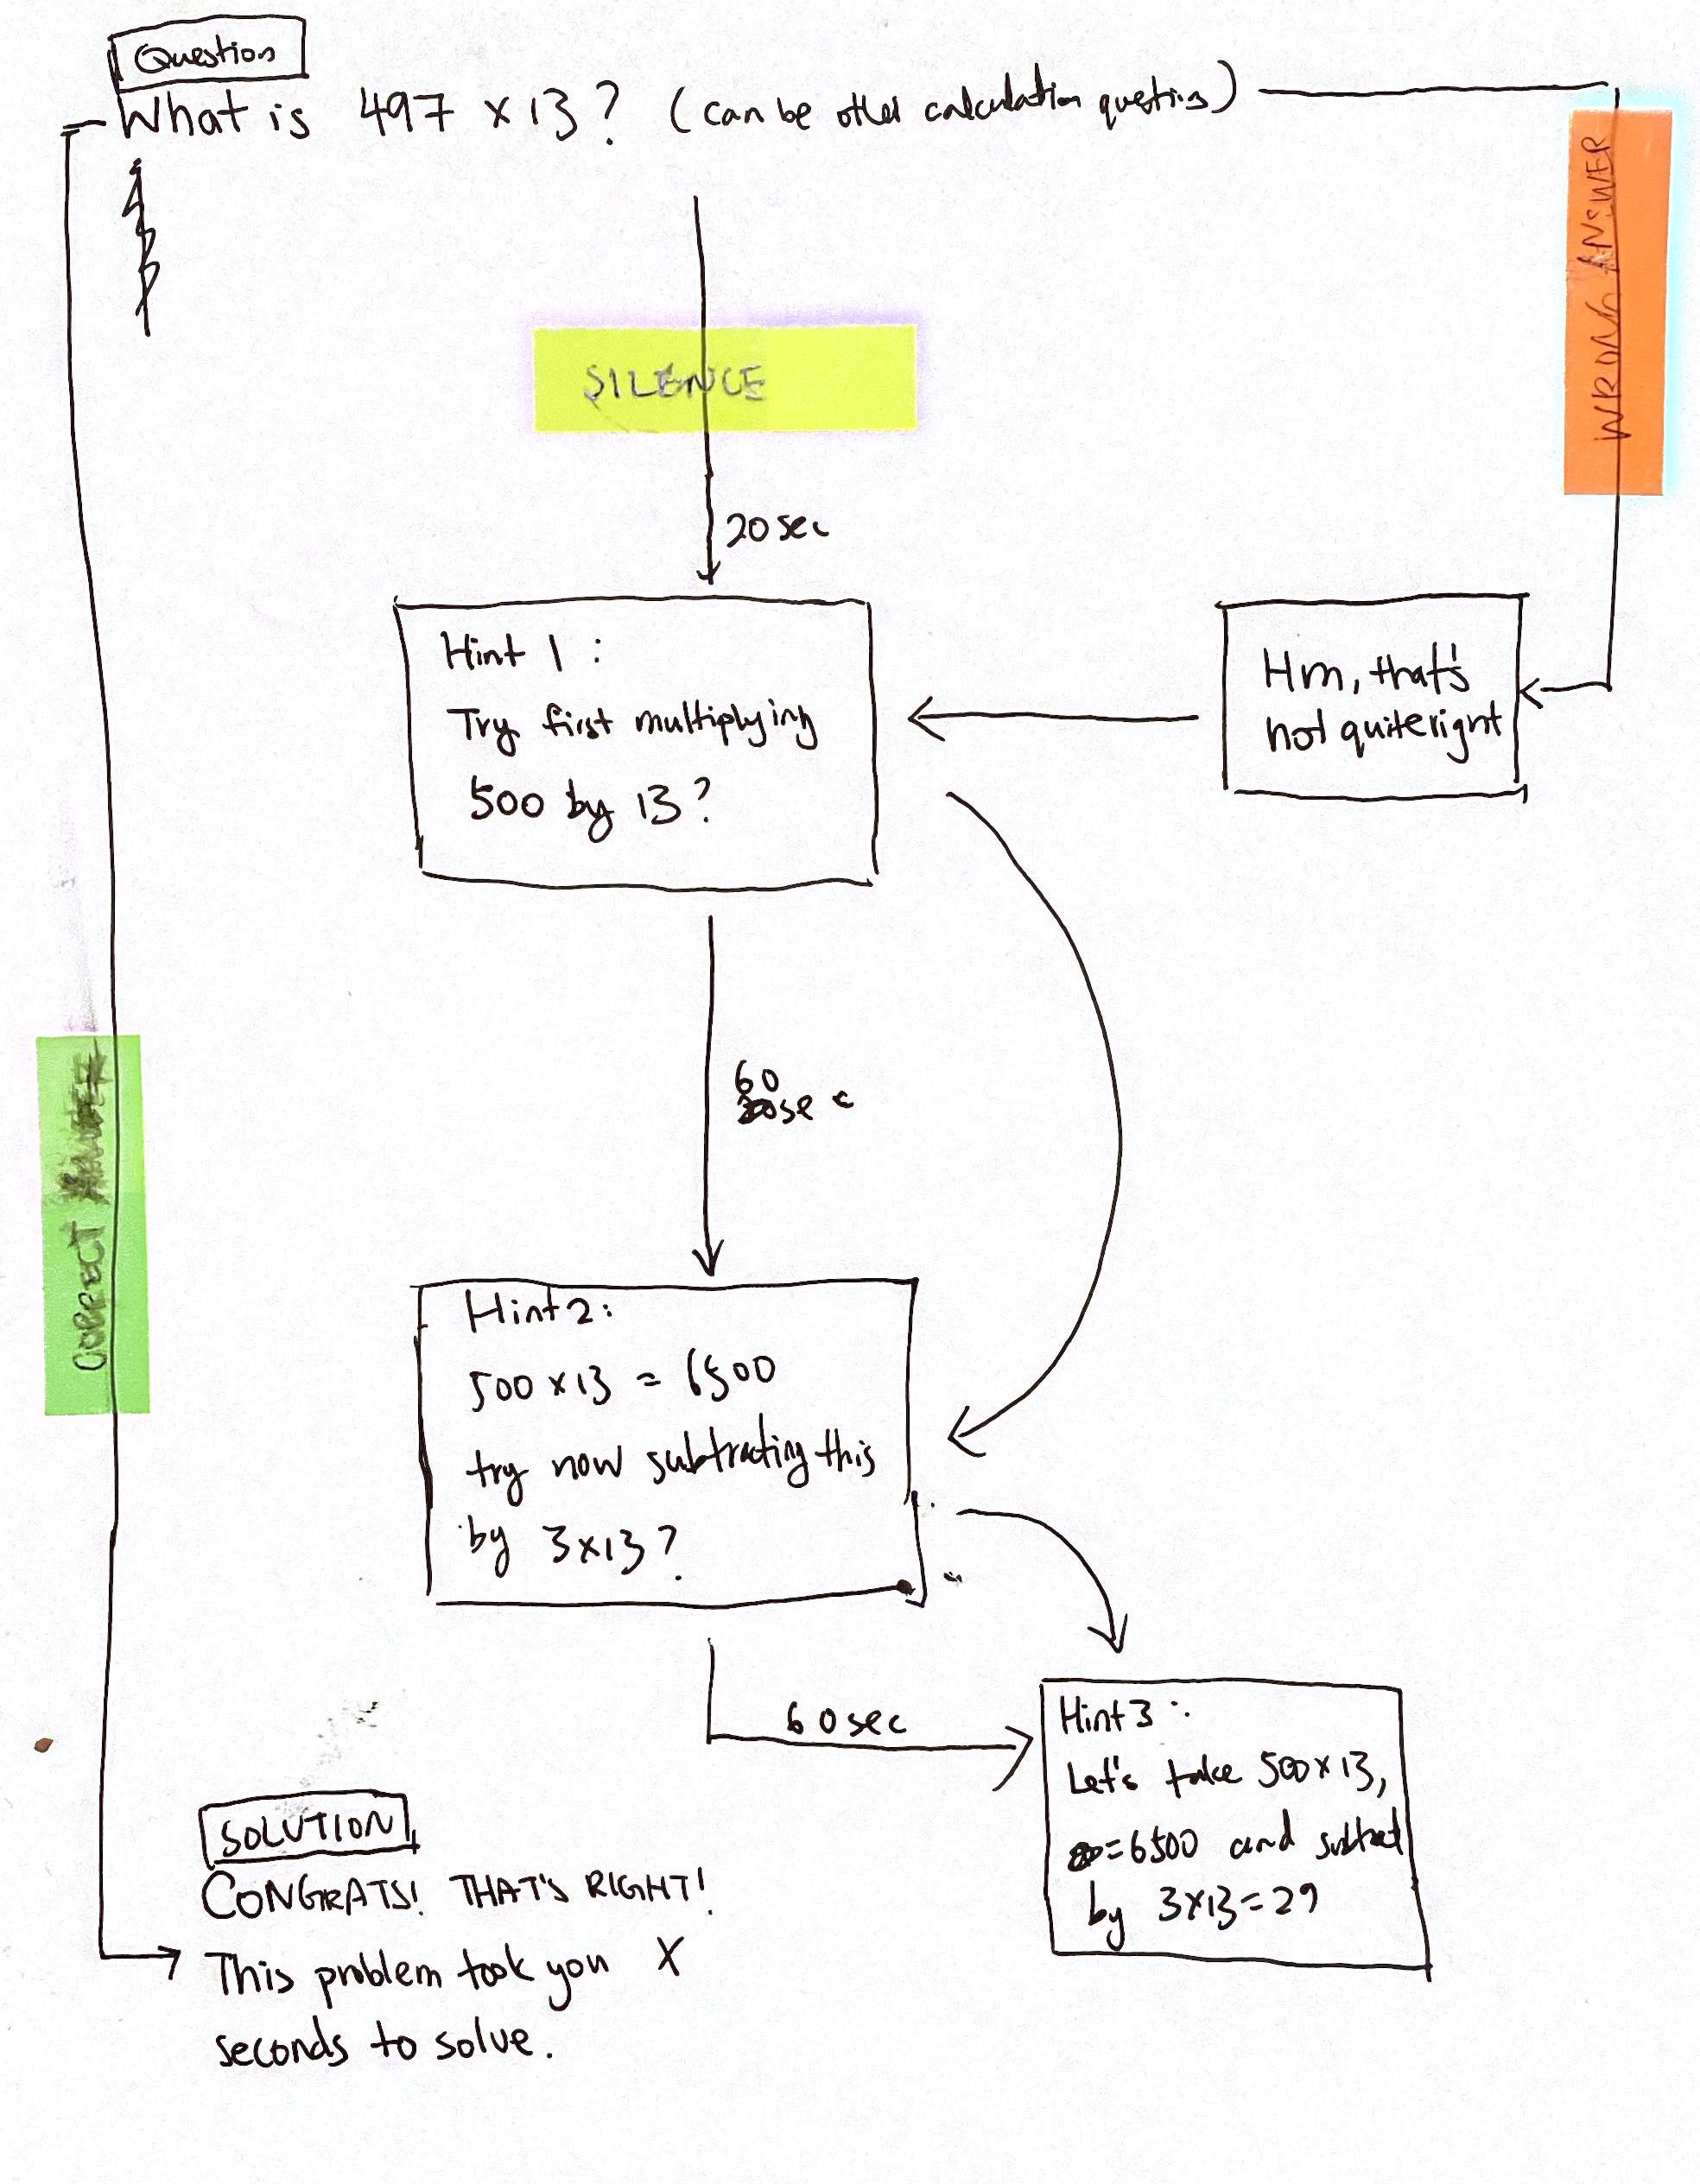 Question
What is 497 x 13? (can be other calculation questins)
WRONG ANSWER
SILENCE
20 sec
Hint 1 :
Try first multiplying
500 by 13?
Hm, that's
not quite right
60
sec
CORRECT
Hint 2:
500 x 13 = 6500
try now subtracting this
by 3x13?
60 sec
Hint 3 :
Let's take 500 x 13,
=6500 and subtract
by 3x13=29
SOLUTION
CONGRATS! THAT'S RIGHT!
This problem took you X
seconds to solve.